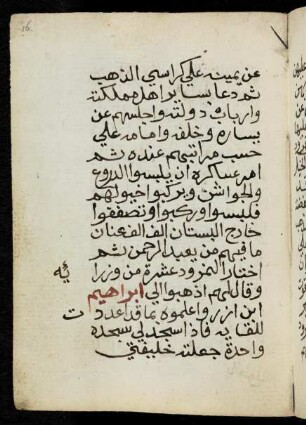 16.
عن يمينه علي كراسي الذهب
ثم دعا بساير اهل مملكته
وارباب دولته واجلسهم عن
يساره وخلفه وامامه علي
حسب مراتبهم عنده ثم
امر عساكره ان يلبسوا الدروع
والجواشن ويركبوا خيولهم
فلبسوا وركبوا وتصففوا
خارج البستان الف الف عنان
ما فيهم من يعبد الرحمن ثم
اختار النمرود عشرة من وزرا
ئه
وقال لهم اذهبوا الي ابراهيم
ابن ازر واعلموه بما قد اعدد
ت
للقايه فاذا سجد لي سجده
واحدة جعلته خليفتي